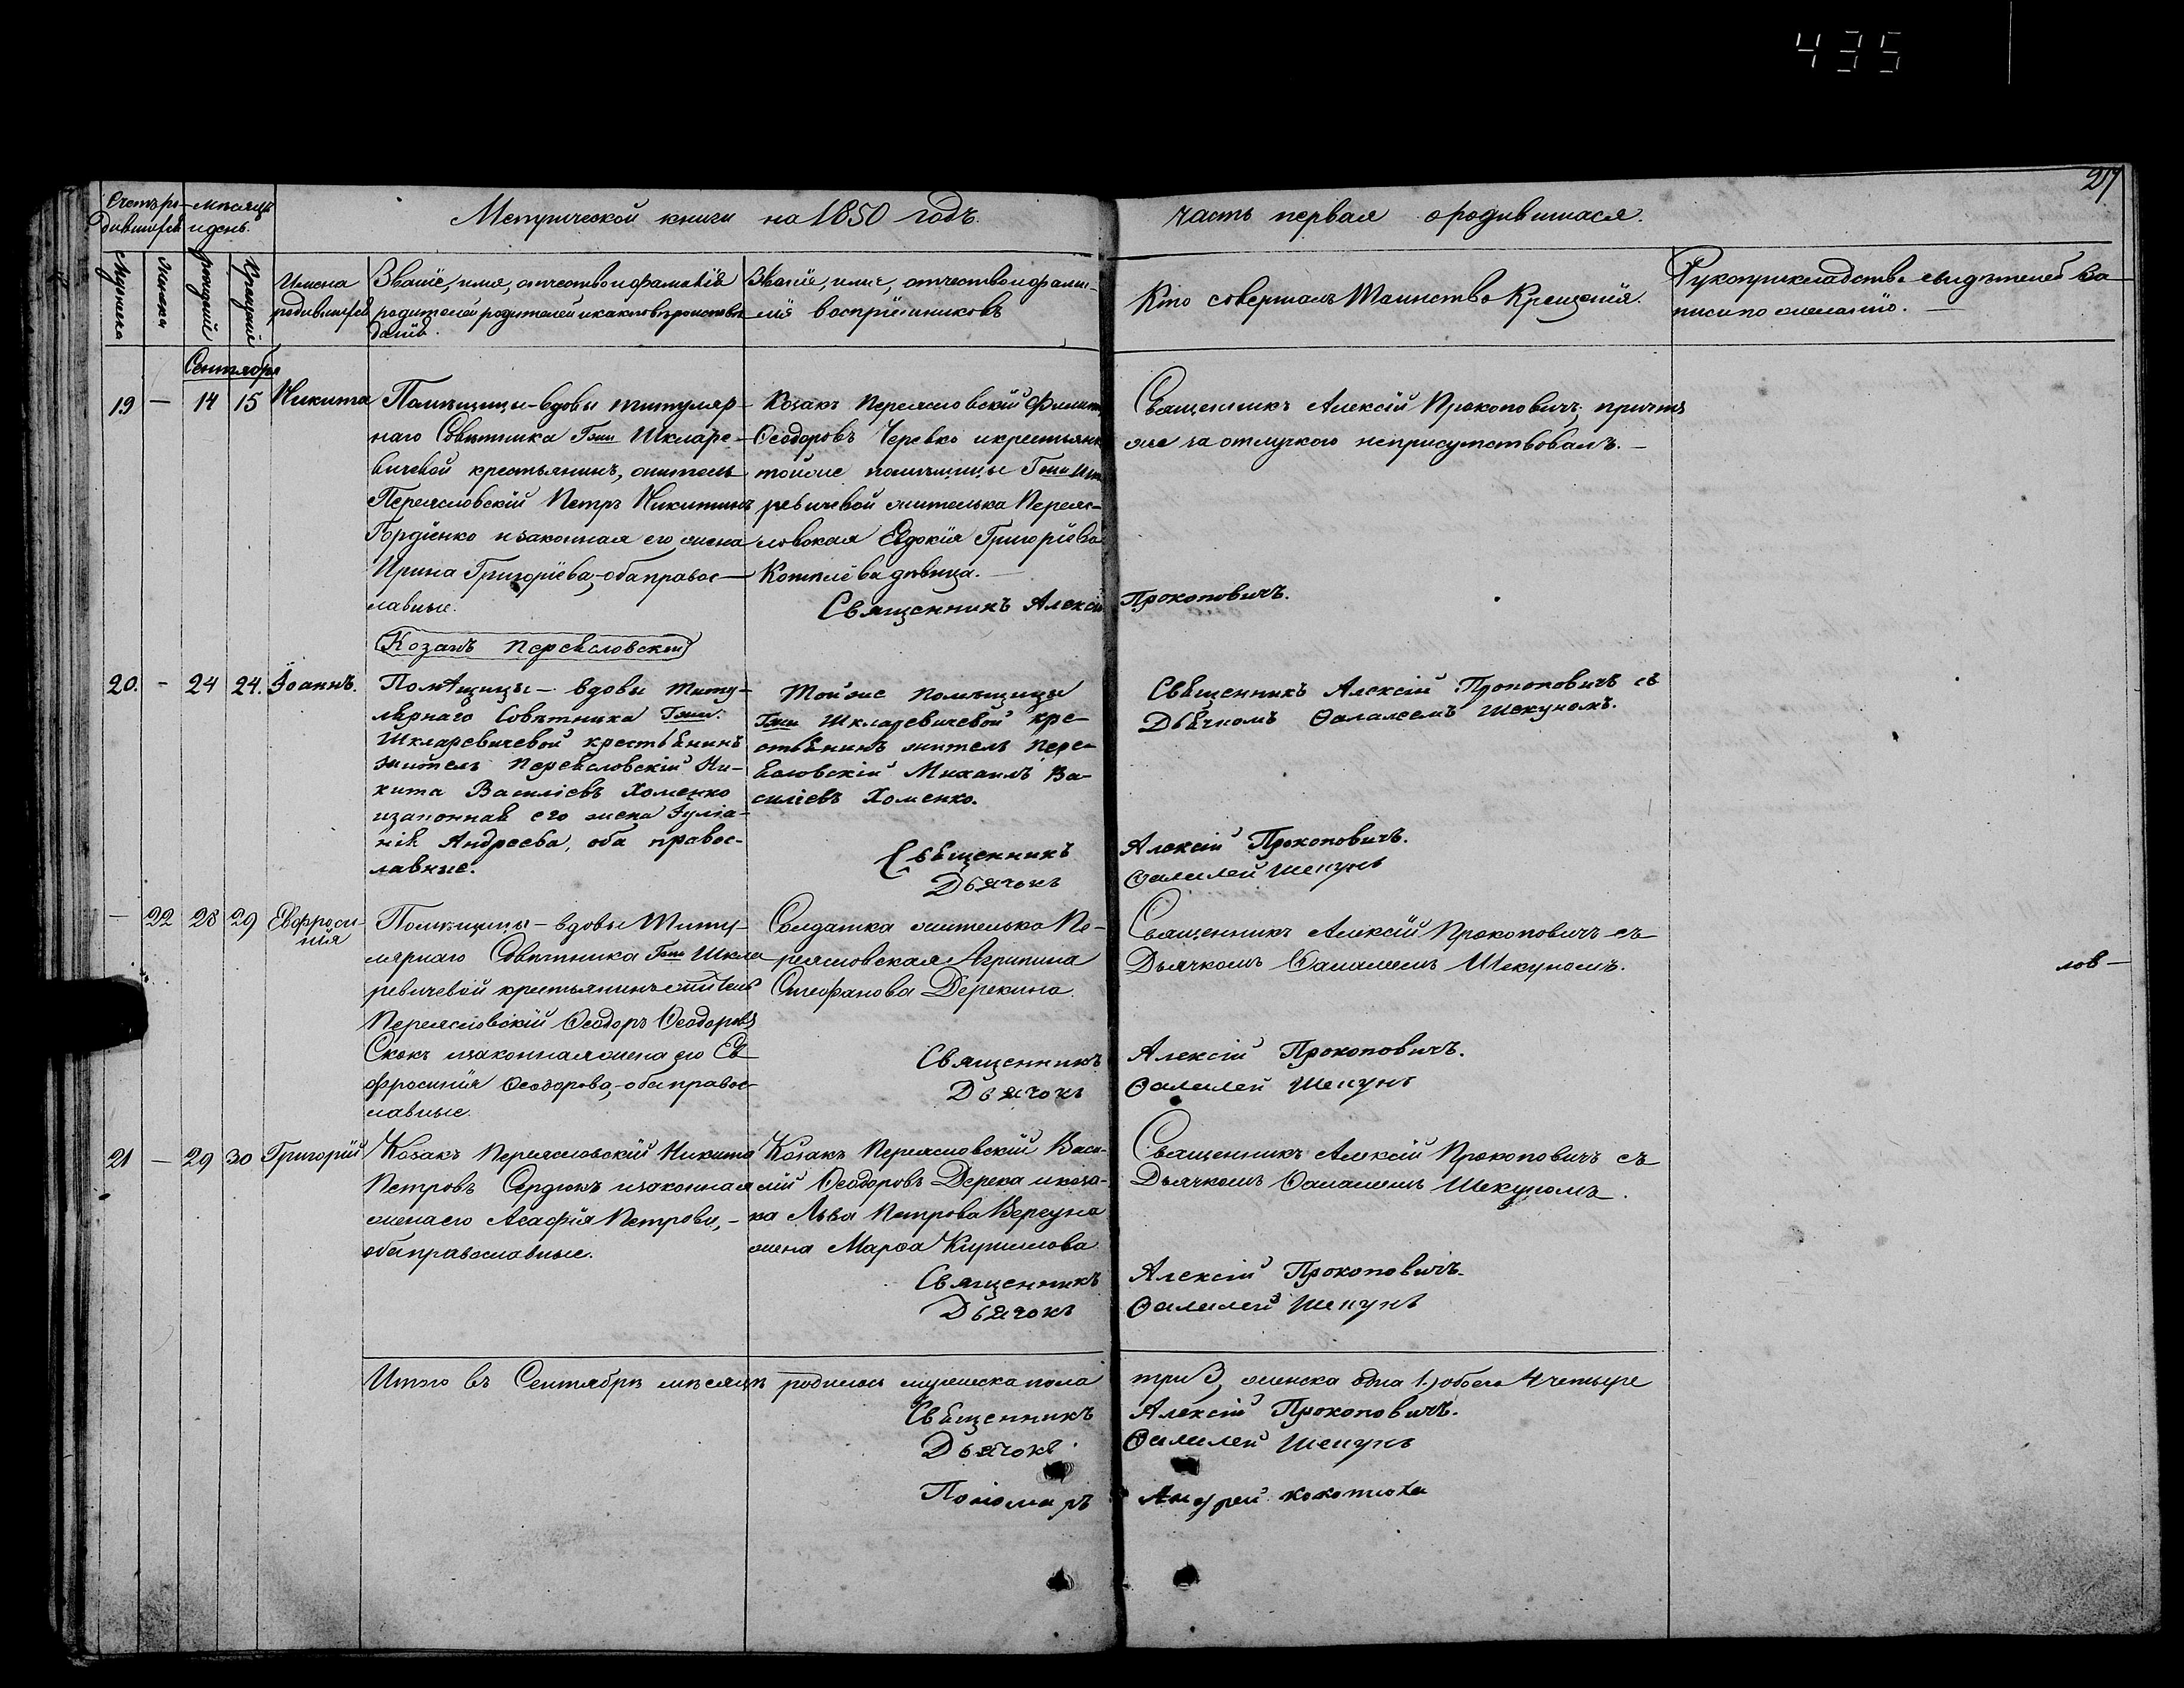 435
217
Счетъ ро- мѣсяцъ
дившихся и день.
Метрической книги на 1850 годъ.
часть первая о родившихся.
Мужеска
Женска
рождений
Крещений
Имена
родившихся
Званіе, имя, отчество и фамилія
родителей родителей и какого вѣроиспове
данія.
Званіе, имя, отчество и фами-
лія воспріемниковъ
Кто совершалъ Таинство Крещенія.
Рукоприкладство свидѣтелей за-
писи по желанію.
Сентября
19 — 14 15 Никита
Помѣщицы-вдовы титуляр-
наго Совѣтника Гжи Шкларе-
вичевой крестьянинъ, житель
Переясловскій Петръ Никитинъ
Гордіенко и законная его жена
Ирина Григоріева, оба правос-
лавные.
Козакъ Переясловскій Филипъ
Ѳеодоровъ Черевко и крестьянк
тойже помѣщицы Гжи Шкл
ревичевой жителька Переяс-
ловская Евдокія Григоріева
девица.
Священникъ Алексій Прокоповичъ; причтъ
же за отлучкою неприсутствовалъ.
Священникъ Алексій Прокоповичъ.
Козакъ Переясловскій
20. - 24 24. Іоаннъ.
Помѣщицы - вдовы титу-
лярнаго Совѣтника Гжи.
Шкларевичевой крестьянинъ
житель Переясловскій Ни-
кита Василіевъ Хоменко
и законная его жена Іуліа-
нія Андреева, оба правос-
лавные.
Тойже помѣщицы
Гжи Шкларевичевой кре-
стьянинъ житель Пере-
яаловскій Михаилъ Ва-
силіевъ Хоменко.
Священникъ Алексій Прокоповичъ съ
Дьячкомъ Ѳалалеемъ Шекуномъ.
Священникъ Алексій Прокоповичъ.
Дьячокъ Ѳалилей Шекунъ
— 22 28 29 Евфроси-
нія
Помѣщицы - вдовы Титу-
лярнаго Совѣтника Гжи Шкла
ревичевой крестьянинъ житель
Переясловскій Ѳеодоръ Ѳеодоровъ
Скокъ и законная жена его Ев
фросинія Ѳеодорова, оба правос-
лавные.
Солдатка жителька Пе-
реясловская Агрипина
Стефанова Дерекина.
Священникъ Алексій Прокоповичъ съ
Дьячкомъ Ѳалалеемъ Шекуномъ.
лов-
Священникъ Алексій Прокоповичъ.
Дьячокъ Ѳалилей Шекунъ
21 — 29 30 Григорій
Козакъ Переясловскій Никита
Петровъ Сердюкъ и законная
жена его Агафія Петрова, -
оба православные.
Козакъ Переясловскій Васи-
лій Ѳеодоровъ Дерека и коза-
ка Льва Петрова Вергуна
жена Марѳа Кирилова
Священникъ Алексій Прокоповичъ съ
Дьячкомъ Ѳалалеемъ Шекуномъ.
Священникъ Алексій Прокоповичъ.
Дьячокъ Ѳалилей Шекунъ
Итого въ Сентябрѣ мѣсяцѣ родилось мужеска пола три 3, женска одна 1.) обоего 4 четыре
Священникъ Алексій Прокоповичъ.
Дьячокъ Ѳалилей Шекунъ
Пономарь Андрей Кокотюха